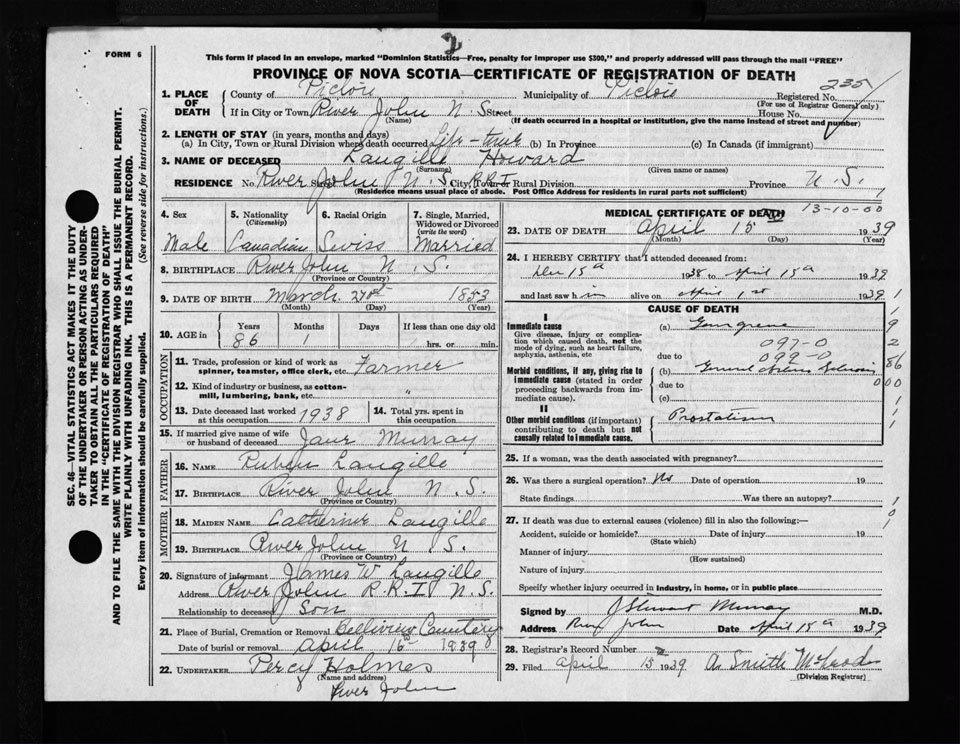 2
FORM 6
This form if placed in an envelope, marked "Dominion Statistics—Free, penalty for improper use $300," and properly addressed will pass through the mail "FREE"
PROVINCE OF NOVA SCOTIA—CERTIFICATE OF REGISTRATION OF DEATH
235
1. PLACE OF DEATH County of Pictou Municipality of Pictou Registered No.
(For use of Registrar General only)
If in City or Town River John N. S Street House No.
(Name) (If death occurred in a hospital or institution, give the name instead of street and number)
2. LENGTH OF STAY (in years, months and days)
(a) In City, Town or Rural Division where death occurred Life-time (b) In Province (c) In Canada (if immigrant)
3. NAME OF DECEASED Langille Howard
(Surname) (Given name or names)
RESIDENCE No. River Street John N. S. R.R.I City, Town or Rural Division Province N. S.
(Residence means usual place of abode. Post Office Address for residents in rural parts not sufficient)
4. Sex Male
5. Nationality (Citizenship) Canadian
6. Racial Origin Swiss
7. Single, Married, Widowed or Divorced (write the word) Married
8. BIRTHPLACE River John N. S.
(Province or Country)
9. DATE OF BIRTH March 1853
(Month) (Day) (Year)
10. AGE in Years 86 Months 1 Days If less than one day old hrs. or min.
OCCUPATION
11. Trade, profession or kind of work as spinner, teamster, office clerk, etc. Farmer
12. Kind of industry or business, as cotton-mill, lumbering, bank, etc. "
13. Date deceased last worked at this occupation 1938 14. Total yrs. spent in this occupation
15. If married give name of wife or husband of deceased Jane Murray
FATHER
16. NAME Ruben Langille
17. BIRTHPLACE River John N. S.
(Province or Country)
MOTHER
18. MAIDEN NAME Catherine Langille
19. BIRTHPLACE River John N. S.
(Province or Country)
20. Signature of informant James W Langille
Address River John R.R.I N. S.
Relationship to deceased Son
21. Place of Burial, Cremation or Removal Belliview Cemetery
Date of burial or removal April 16th 1939
22. UNDERTAKER Percy Holmes
(Name and address)
River John
MEDICAL CERTIFICATE OF DEATH
13-10-00
23. DATE OF DEATH April 15 1939
(Month) (Day) (Year)
24. I HEREBY CERTIFY that I attended deceased from:
Dec 15th 1938 to April 15th 1939
and last saw him alive on April 1st 1939
CAUSE OF DEATH
I
Immediate cause (a) Gangrene
Give disease, injury or complication which caused death, not the mode of dying, such as heart failure, asphyxia, asthenia, etc
097-0
099-0
due to
Morbid conditions, if any, giving rise to immediate cause (stated in order proceeding backwards from immediate cause).
(b) General Arterio Sclerosis
due to
(c)
II
Other morbid conditions (if important) contributing to death but not causally related to immediate cause.
Prostatism
1
9
2
86
000
1
1
1
25. If a woman, was the death associated with pregnancy?
26. Was there a surgical operation? No Date of operation 19
State findings Was there an autopsy?
27. If death was due to external causes (violence) fill in also the following:—
Accident, suicide or homicide? Date of injury 19
(State which)
Manner of injury
(How sustained)
Nature of injury
Specify whether injury occurred in industry, in home, or in public place
1
0
1
Signed by J Stewart Murray M.D.
Address River John Date April 15th 1939
28. Registrar's Record Number 2
29. Filed April 15 1939 A. Smith
(Division Registrar)
SEC. 46—VITAL STATISTICS ACT MAKES IT THE DUTY
OF THE UNDERTAKER OR PERSON ACTING AS UNDER-
TAKER TO OBTAIN ALL THE PARTICULARS REQUIRED
IN THE "CERTIFICATE OF REGISTRATION OF DEATH"
AND TO FILE THE SAME WITH THE DIVISION REGISTRAR WHO SHALL ISSUE THE BURIAL PERMIT.
WRITE PLAINLY WITH UNFADING INK. THIS IS A PERMANENT RECORD.
Every item of information should be carefully supplied. (See reverse side for instructions.)